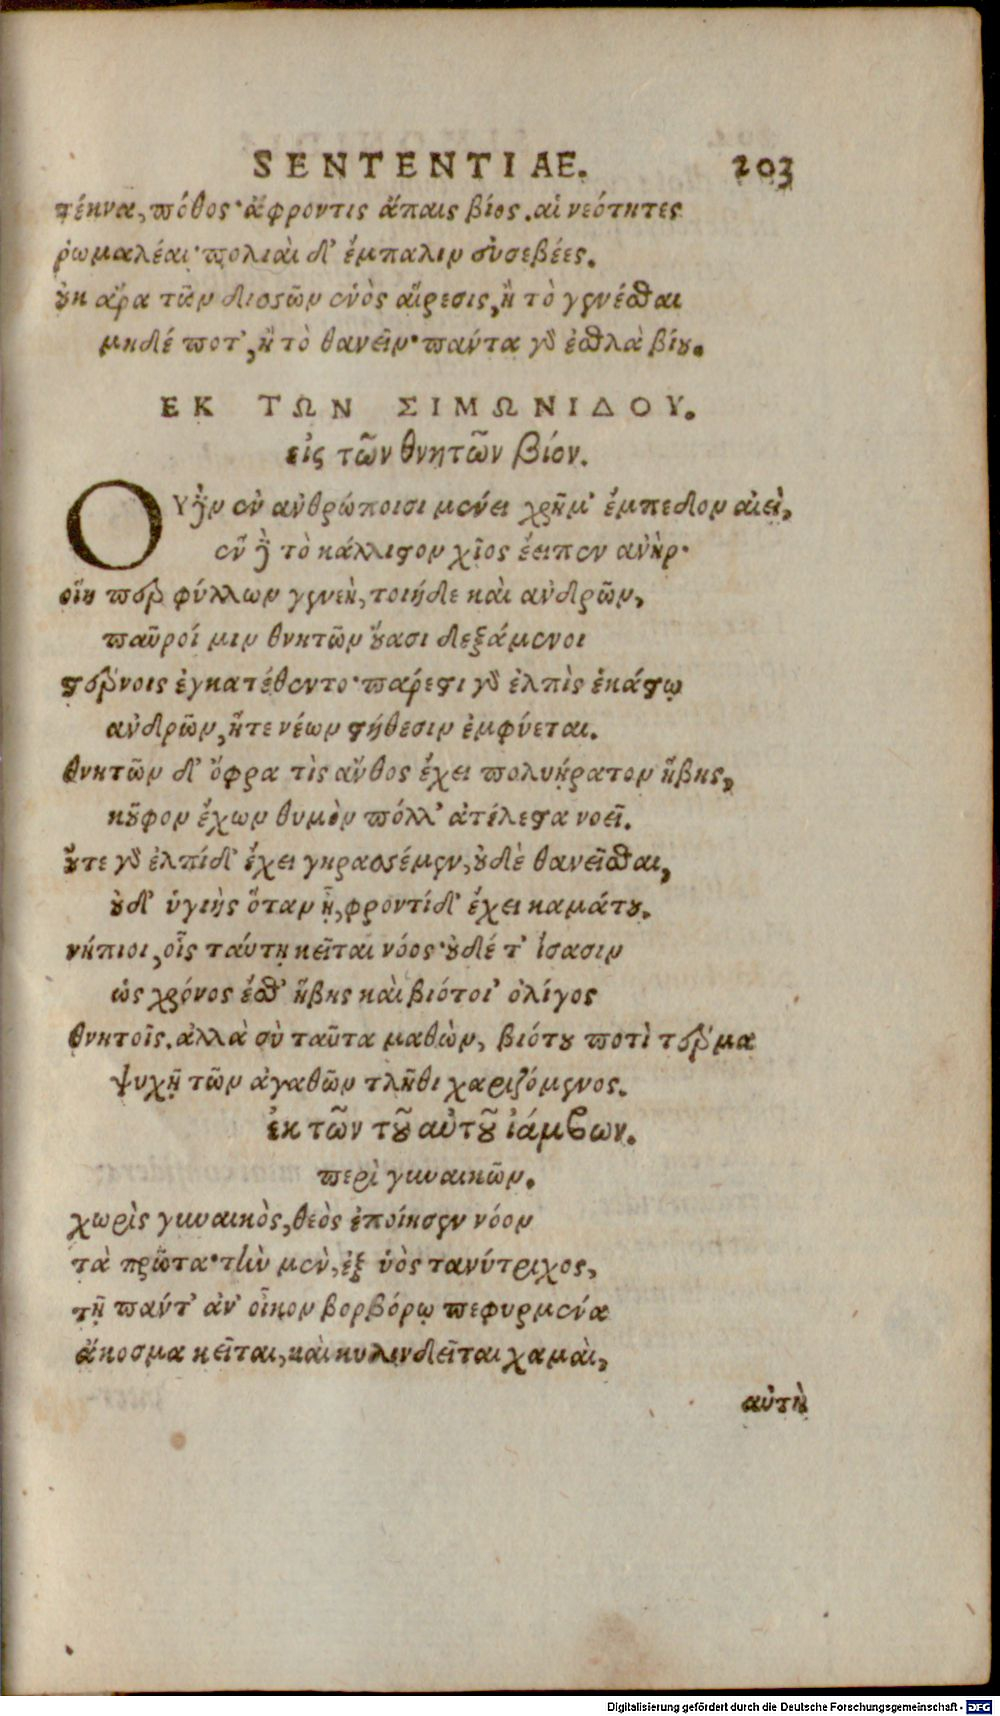 SENTENTIAE. 203
τέκνα, πόθος· ἄφροντις ἄπαις βίος. αἱ νεότητες
ῥωμαλέαι· πολιαὶ δ' ἔμπαλιν εὐσεβέες.
οὐκ ἄρα τῶν δισσῶν ἑνὸς αἵρεσις, ἢ τὸ γενέσθαι
μηδέ ποτ', ἢ τὸ θανεῖν· πάντα γὰρ ἐσθλὰ βίου.
ΕΚ ΤΩΝ ΣΙΜΩΝΙΔΟΥ.
εἰς τῶν θνητῶν βίον.
ΟΥδὲν ἐν ἀνθρώποισι μένει χρῆμ' ἔμπεδον αἰεὶ,
ἓν δὲ τὸ κάλλιστον χῖος ἔειπεν ἀνὴρ·
οἵη περ φύλλων γενεὴ, τοιήδε καὶ ἀνδρῶν,
παῦροί μιν θνητῶν οὔασι δεξάμενοι
στέρνοις ἐγκατέθεντο· πάρεστι γὰρ ἐλπὶς ἑκάστῳ
ἀνδρῶν, ἥτε νέων στήθεσιν ἐμφύεται.
θνητῶν δ' ὄφρα τὶς ἄνθος ἔχει πολυήρατον ἥβης,
κοῦφον ἔχων θυμὸν πόλλ' ἀτέλεστα νοεῖ.
οὔτε γὰρ ἐλπίδ' ἔχει γηρασσέμεν, οὐδὲ θανεῖσθαι,
οὐδ' ὑγιὴς ὅταν ᾖ, φροντίδ' ἔχει καμάτου.
νήπιοι, οἷς ταύτῃ κεῖται νόος· οὐδέ τ' ἴσασιν
ὡς χρόνος ἔσθ' ἥβης καὶ βιότοι' ὀλίγος
θνητοῖς. ἀλλὰ σὺ ταῦτα μαθὼν, βιότου ποτὶ τέρμα
ψυχῇ τῶν ἀγαθῶν τλῆθι χαριζόμενος.
ἐκ τῶν τοῦ αὐτοῦ ἰάμβων.
περὶ γυναικῶν.
χωρὶς γυναικὸς, θεὸς ἐποίησεν νόον
τὰ πρῶτα· τὴν μὲν, ἐξ ὑὸς τανύτριχος,
τῇ πάντ' ἀν' οἶκον βορβόρῳ πεφυρμένα
ἄκοσμα κεῖται, καὶ κυλινδεῖται χαμαὶ,
αὐτὴ
Digitalisierung gefördert durch die Deutsche Forschungsgemeinschaft - DFG